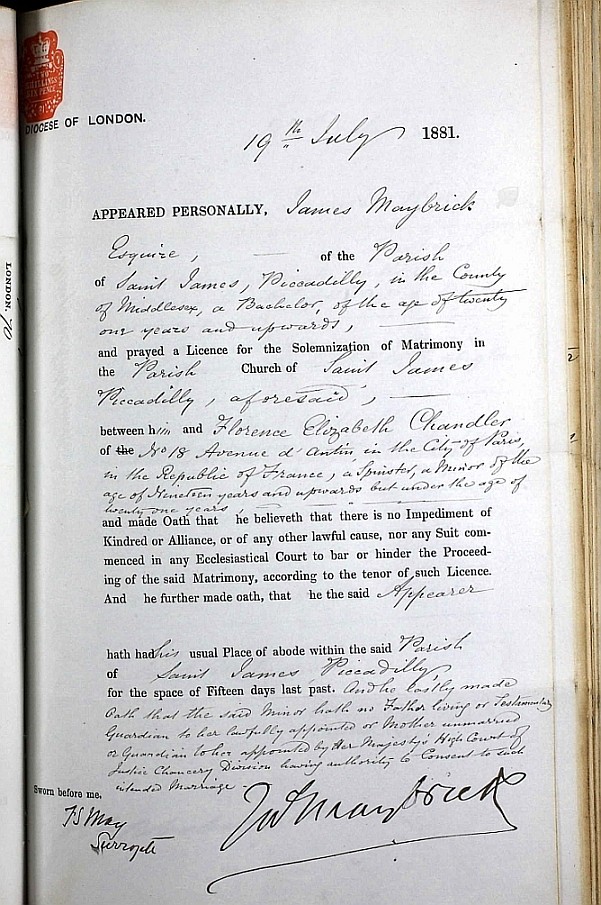 TWO
SHILLINGS
SIX PENCE
DIOCESE OF LONDON.
19th July 1881.
APPEARED PERSONALLY, James Maybrick
Esquire, of the Parish
of Saint James, Piccadilly, in the County
of Middlesex, a Bachelor, of the age of twenty
one years and upwards,
and prayed a Licence for the Solemnization of Matrimony in
the Parish Church of Saint James
Piccadilly, aforesaid,
between him and Florence Elizabeth Chandler
of the No 18 Avenue d'Antin, in the City of Paris,
in the Republic of France, a Spinster, a Minor of the
age of Nineteen years and upwards but under the age of
twenty one years,
and made Oath that he believeth that there is no Impediment of
Kindred or Alliance, or of any other lawful cause, nor any Suit com-
menced in any Ecclesiastical Court to bar or hinder the Proceed-
ing of the said Matrimony, according to the tenor of such Licence.
And he further made oath, that he the said Appearer
hath had his usual Place of abode within the said Parish
of Saint James, Piccadilly
for the space of Fifteen days last past. And he lastly made
Oath that the said Minor hath no Father living or Testamentary
Guardian to her lawfully appointed or Mother unmarried
or Guardian to her appointed by Her Majesty's High Court of
Justice Chancery Division having authority to Consent to such
intended Marriage.
Sworn before me,
Jas Maybrick
TS May
Surrogate
LONDON.